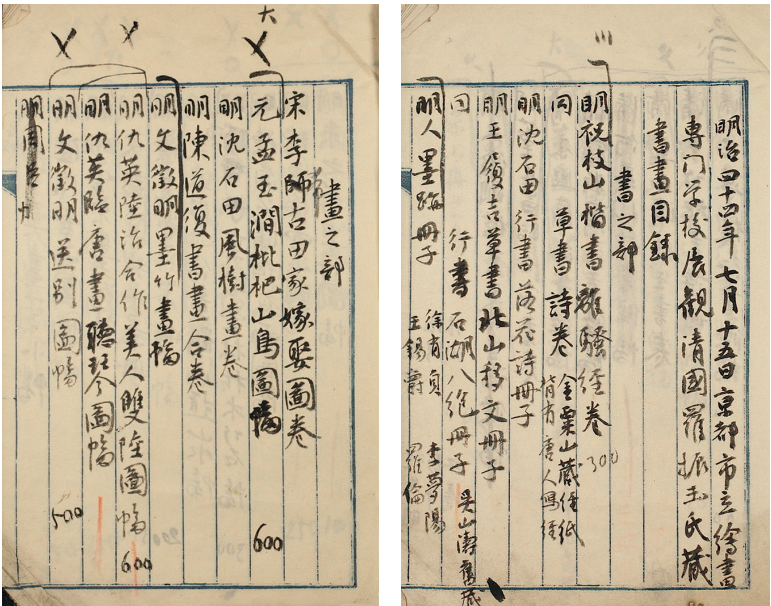 明治四十四年七月十五日京都市立繪畫
専门学校展觀清國羅振玉氏蔵
書畫目録
書之部
明祝枝山楷書離騷経卷 300
同 草書詩卷 金粟山蔵経紙
背有唐人寫経
明沈石田行書落花詩冊子
明王履吉草書北山移文冊子
同 行書石湖八絶冊子 吳山濤舊蔵
明人墨跡冊子 徐有貞 李夢陽
王錫爵 羅倫
畫之部
宋李師古田家嫁娶圖卷
大
元孟玉澗枇杷山鳥圖幅 600
明沈石田風樹畫卷
明陳道復書畫合卷
明文徴明墨竹畫幅
明仇英陸治合作美人雙陸圖幅 600
明仇英臨唐畫聽琴圖幅
明文徴明送別圖幅 500
明周